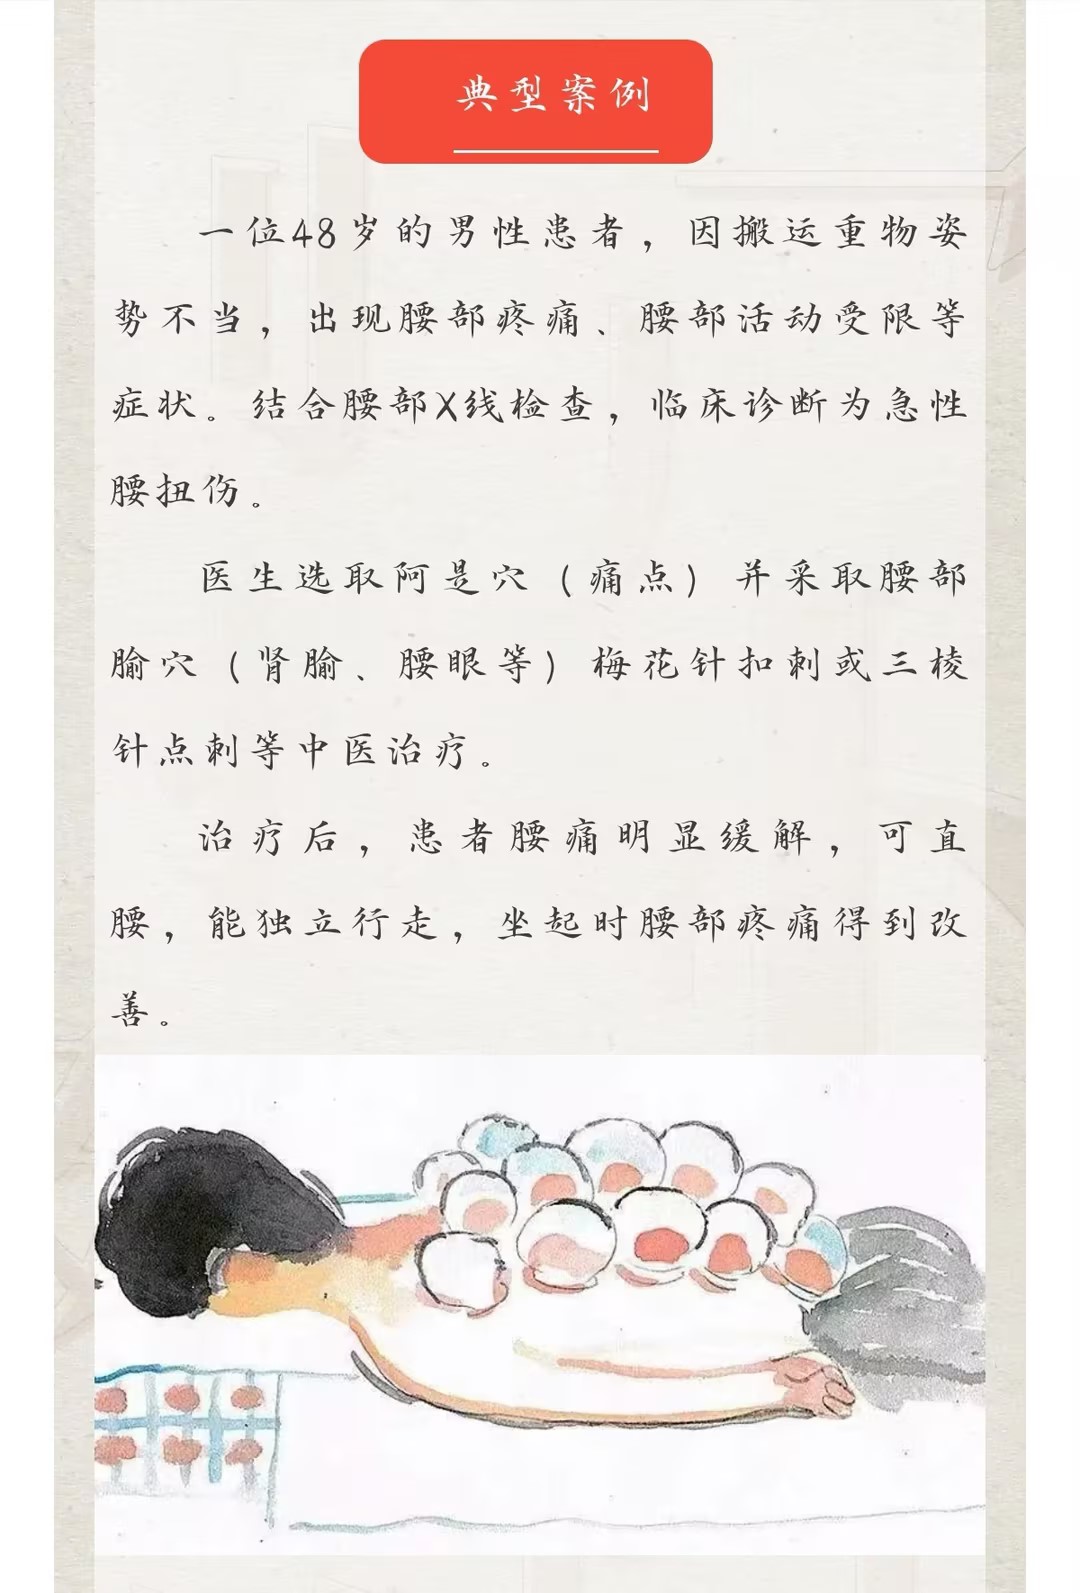 典型案例
一位48岁的男性患者，因搬运重物姿
势不当，出现腰部疼痛、腰部活动受限等
症状。结合腰部X线检查，临床诊断为急性
腰扭伤。
医生选取阿是穴（痛点）并采取腰部
腧穴（肾腧、腰眼等）梅花针扣刺或三棱
针点刺等中医治疗。
治疗后，患者腰痛明显缓解，可直
腰，能独立行走，坐起时腰部疼痛得到改
善。